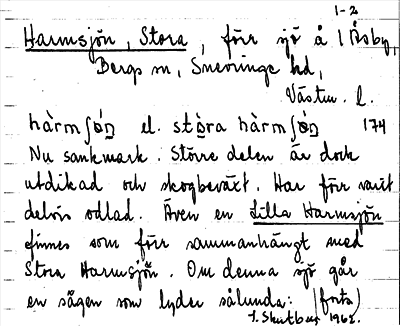 1-2
Harmsjön, Stora, förr sjö å 1 Åsby,
Bergs sn, Snevringe hd,
Västm. l.
hàrmʃö́n el. stòra hàrmʃö́n 174
Nu sankmark. Större delen är dock
utdikad och skogbeväxt. Har förr varit
delvis odlad. Även en Lilla Harmsjön
finnes som förr sammanhängt med
Stora Harmsjön. Om denna sjö går
en sägen som lyder sålunda: (forts)
1962.